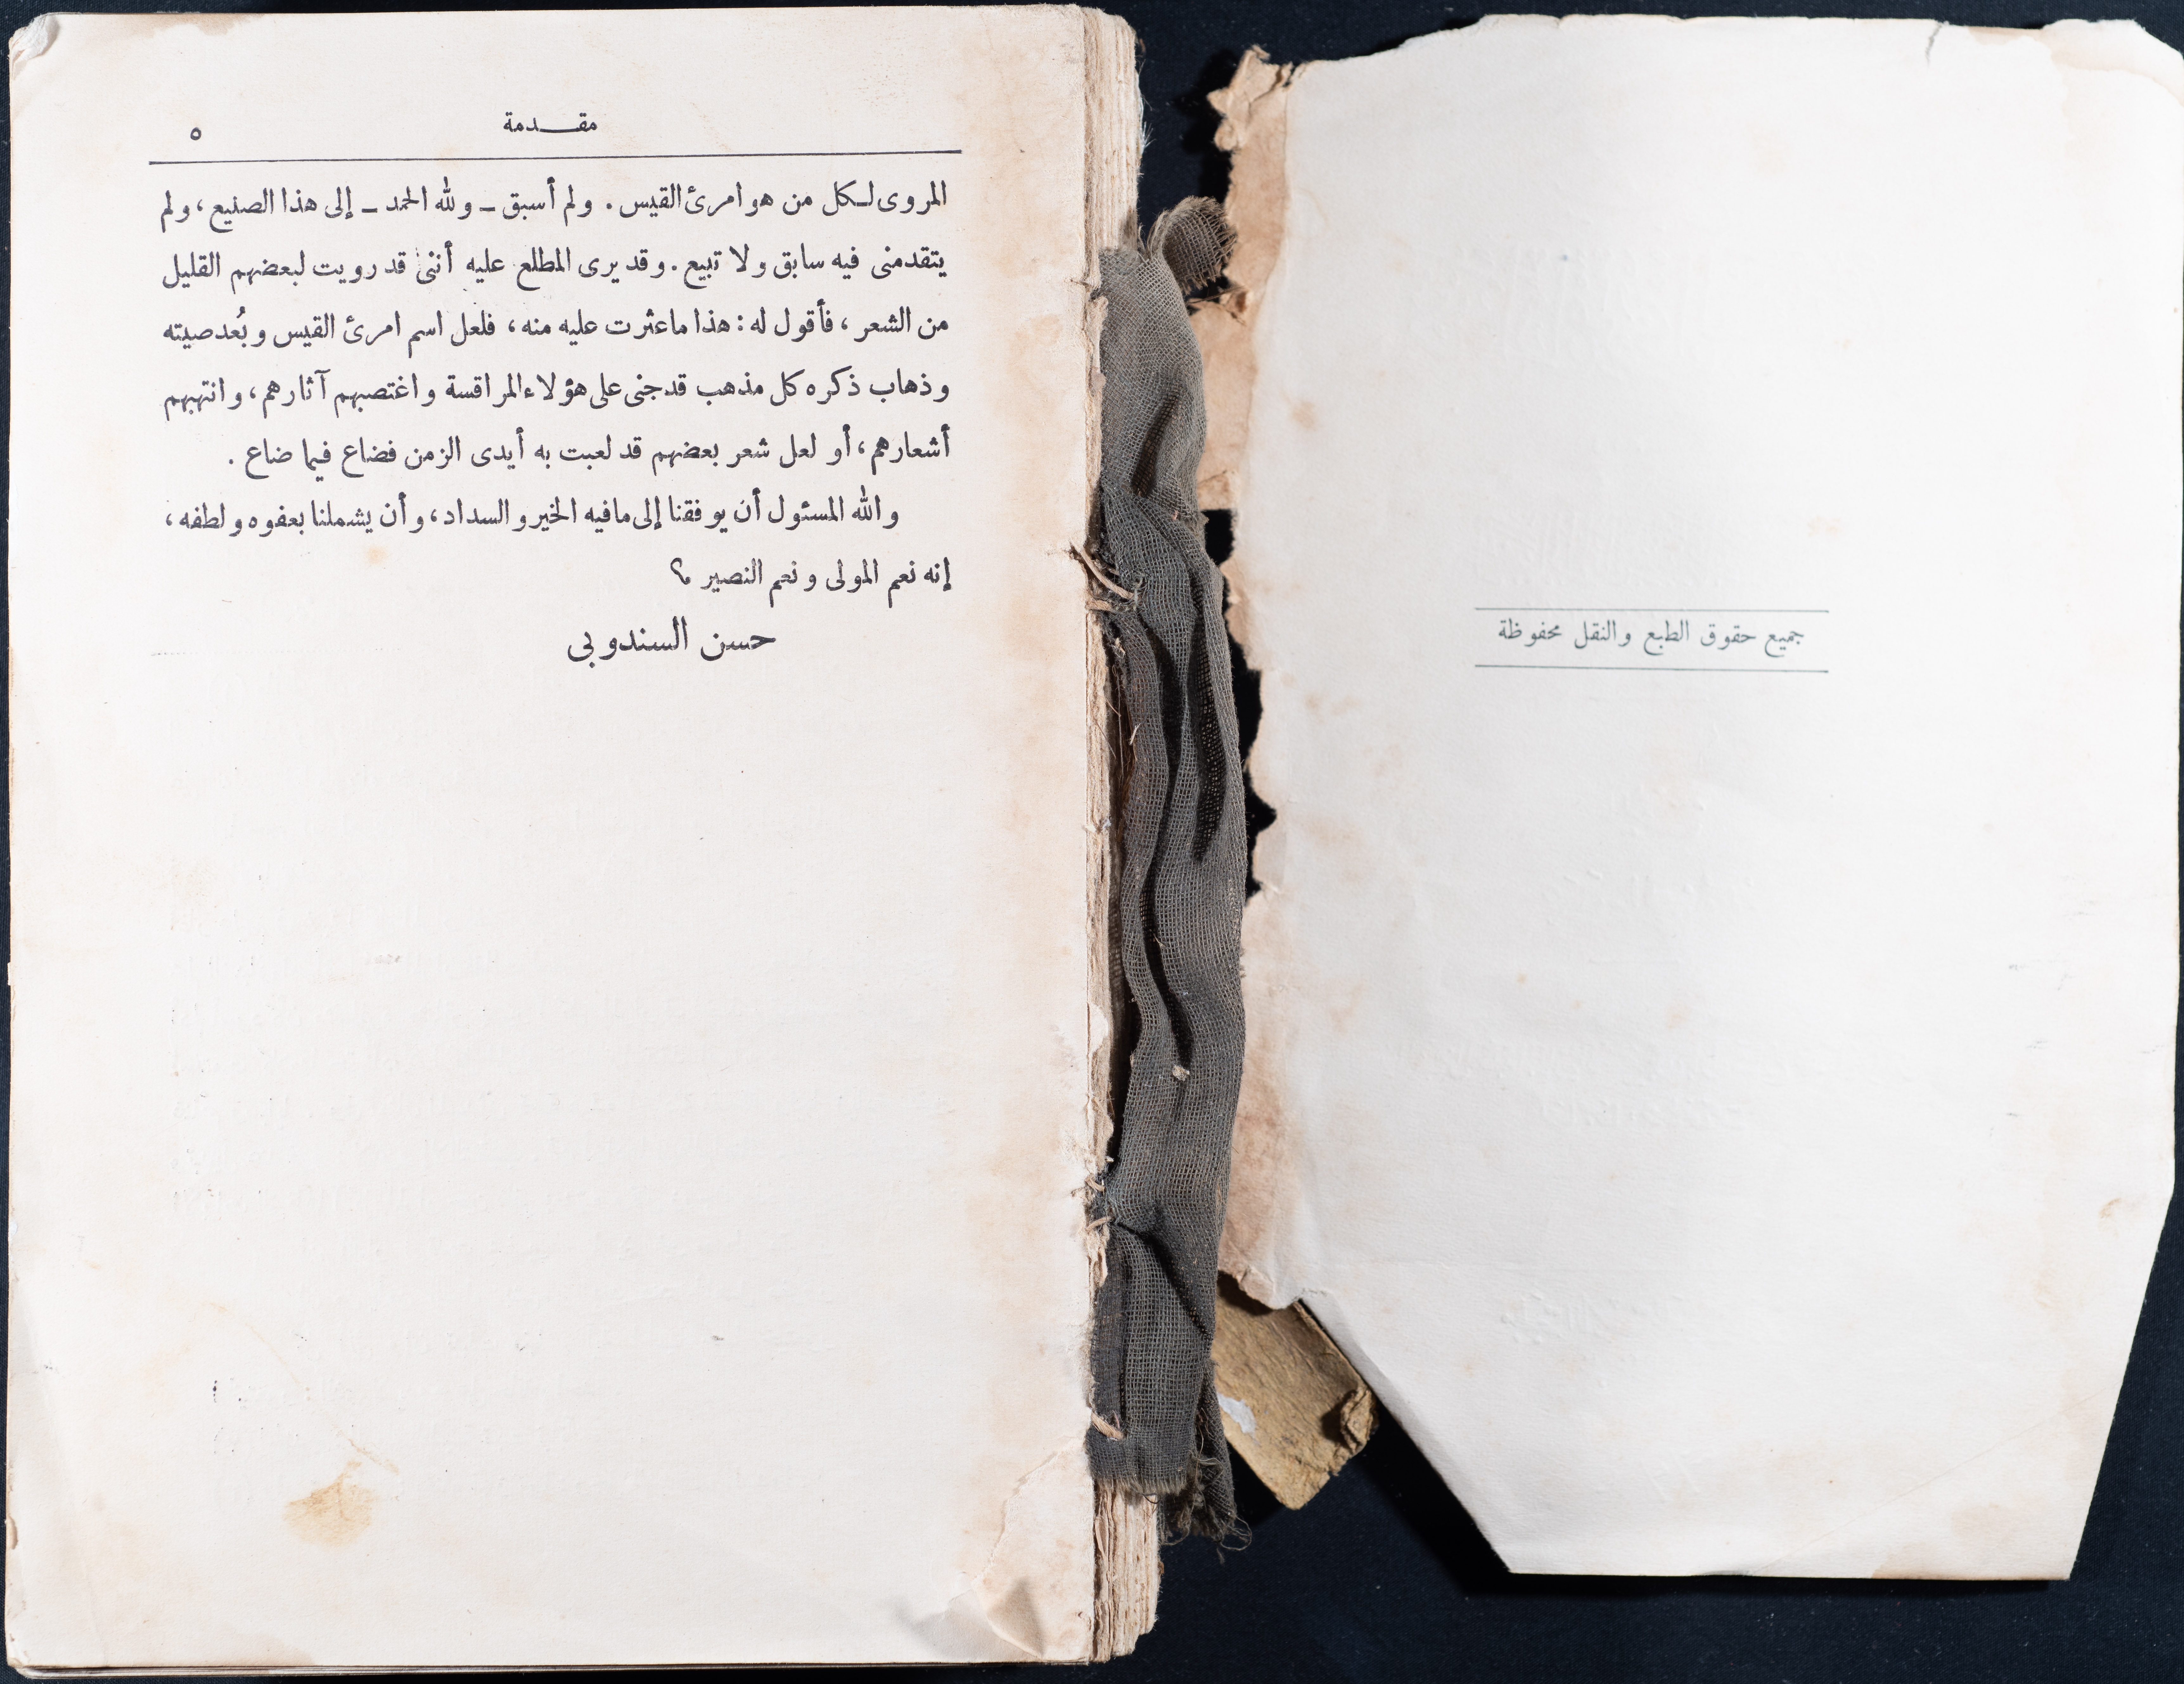 جميع حقوق الطبع والنقل محفوظة
مقدمة
٥
المروى لكل من هو امرئ القيس . ولم أسبق ـ ولله الحمد ـ إلى هذا الصنيع ، ولم
يتقدمنى فيه سابق ولا تبيع . وقد يرى المطلع عليه أننى قد رويت لبعضهم القليل
من الشعر ، فأقول له : هذا ما عثرت عليه منه ، فلعل اسم امرئ القيس وبُعد صيته
وذهاب ذكره كل مذهب قد جنى على هؤلاء المراقسة واغتصبهم آثارهم ، وانتهبهم
أشعارهم ، أو لعل شعر بعضهم قد لعبت به أيدى الزمن فضاع فيما ضاع .
والله المسئول أن يوفقنا إلى ما فيه الخير والسداد ، وأن يشملنا بعفوه ولطفه ،
إنه نعم المولى ونعم النصير ؟
حسن السندوبى